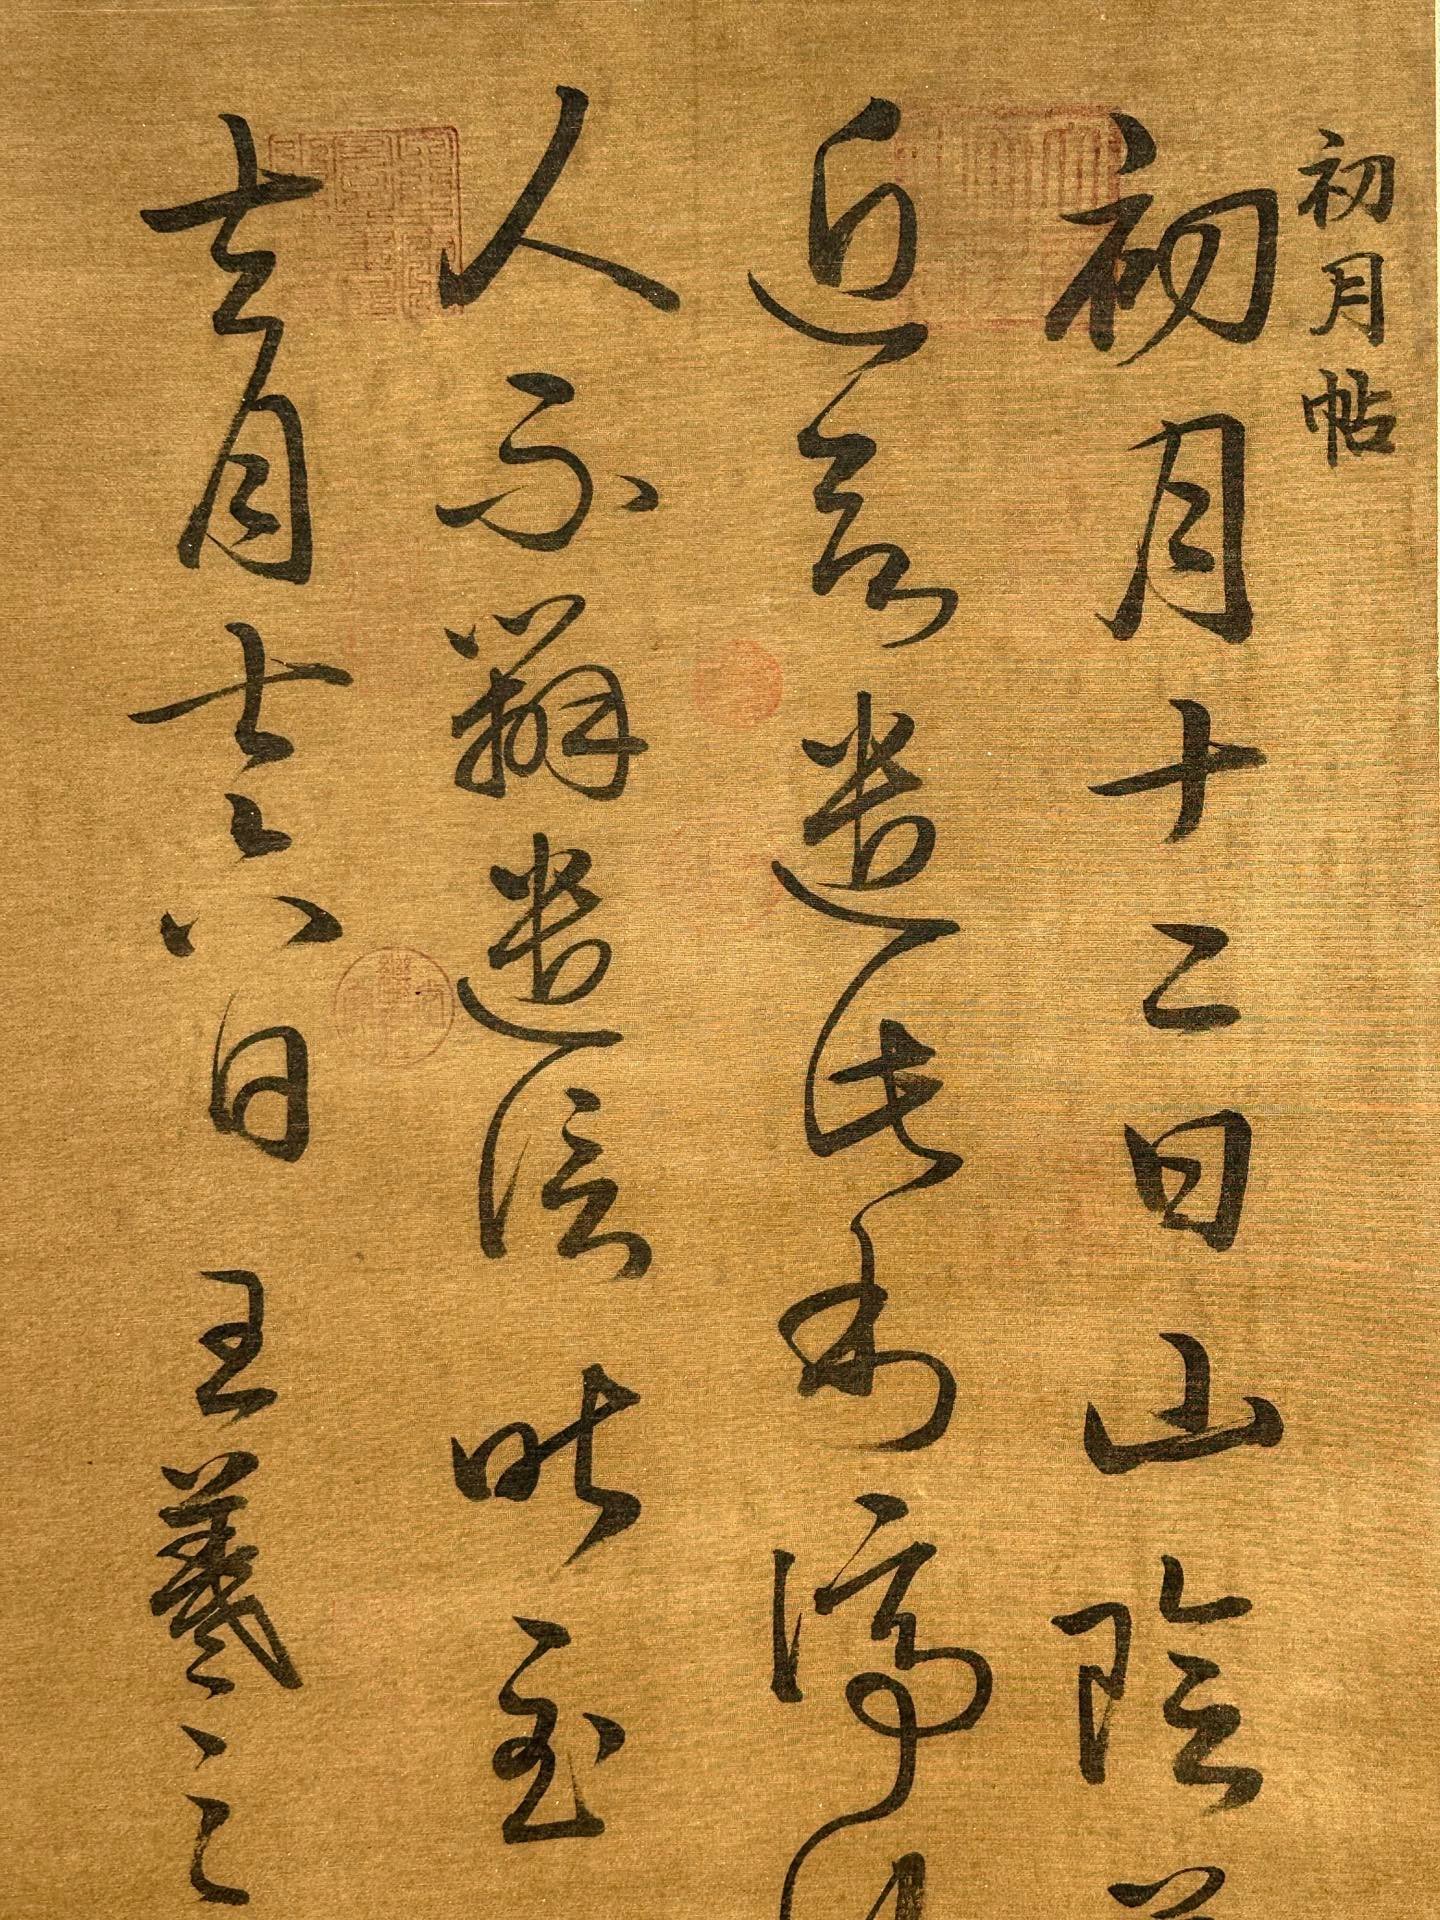 初月帖
初月十二日山陰
近欲遣此書停
人不辦遣信昨至
十二月十六日王羲之